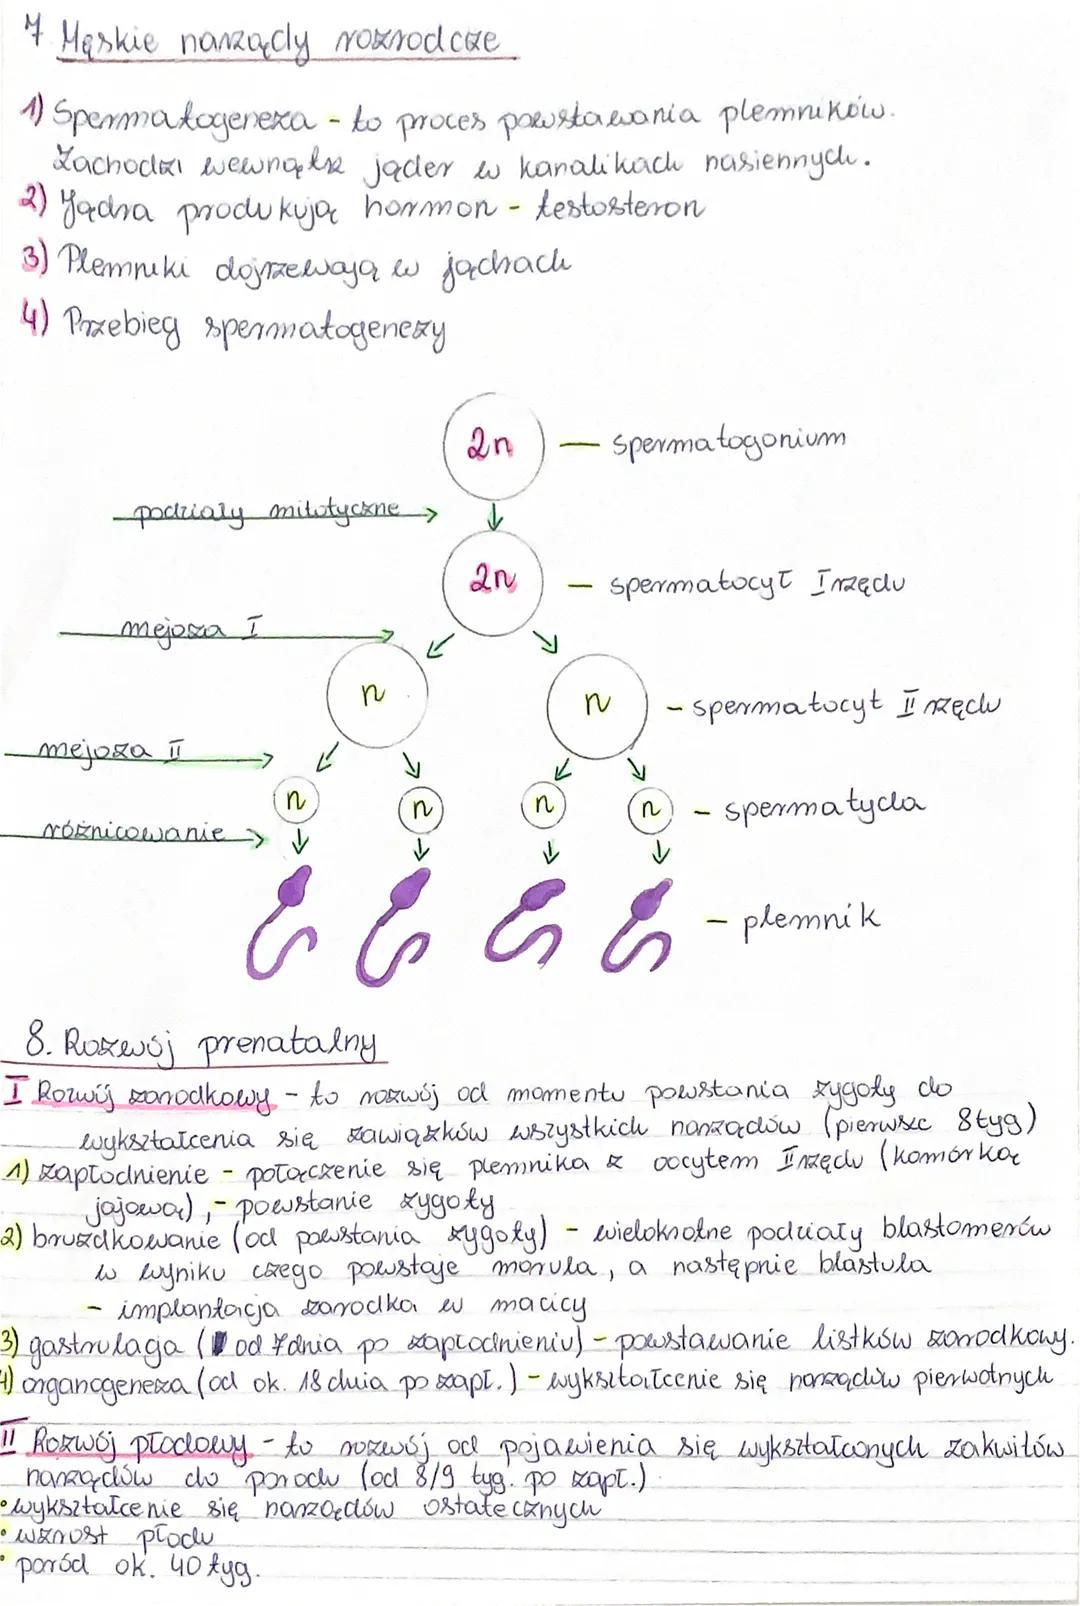 7 Męskie narządy rozrodcze
1) Spermatogeneza - to proces powstawania plemników.
Zachodzi wewnątrz jąder w kanalikach nasiennych.
2) Jądra produkują hormon - testosteron
3) Plemniki dojrzewają w jądrach
4) Przebieg spermatogenezy
2n — spermatogonium
podziały mitotyczne
2n — spermatocyt I rzędu
mejoza I
n n - spermatocyt II rzędu
mejoza II
n n n n - spermatyda
różnicowanie
- plemnik
8. Rozwój prenatalny
I Rozwój zarodkowy - to rozwój od momentu powstania zygoty do
wykształcenia się zawiązków wszystkich narządów (pierwsze 8 tyg)
1) zapłodnienie - połączenie się plemnika z oocytem II rzędu (komórką
jajową), - powstanie zygoty
2) bruzdkowanie (od powstania zygoty) - wielokrotne podziały blastomerów
w wyniku czego powstaje morula, a następnie blastula
- implantacja zarodka w macicy
3) gastrulacja (od 7 dnia po zapłodnieniu) - powstawanie listków zarodkowy.
4) organogeneza (od ok. 18 dnia po zapł.) - wykształcenie się narządów pierwotnych
II Rozwój płodowy - to rozwój od pojawienia się wykształconych zakwitów
narządów do porodu (od 8/9 tyg. po zapł.)
• wykształcenie się narządów ostatecznych
• wzrost płodu
• poród ok. 40 tyg.